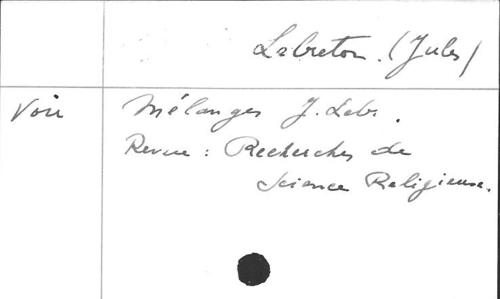 Lebreton. (Jules)
Voir Mélanges J. Lebr.
Revue : Recherches de
Science Religieuse.